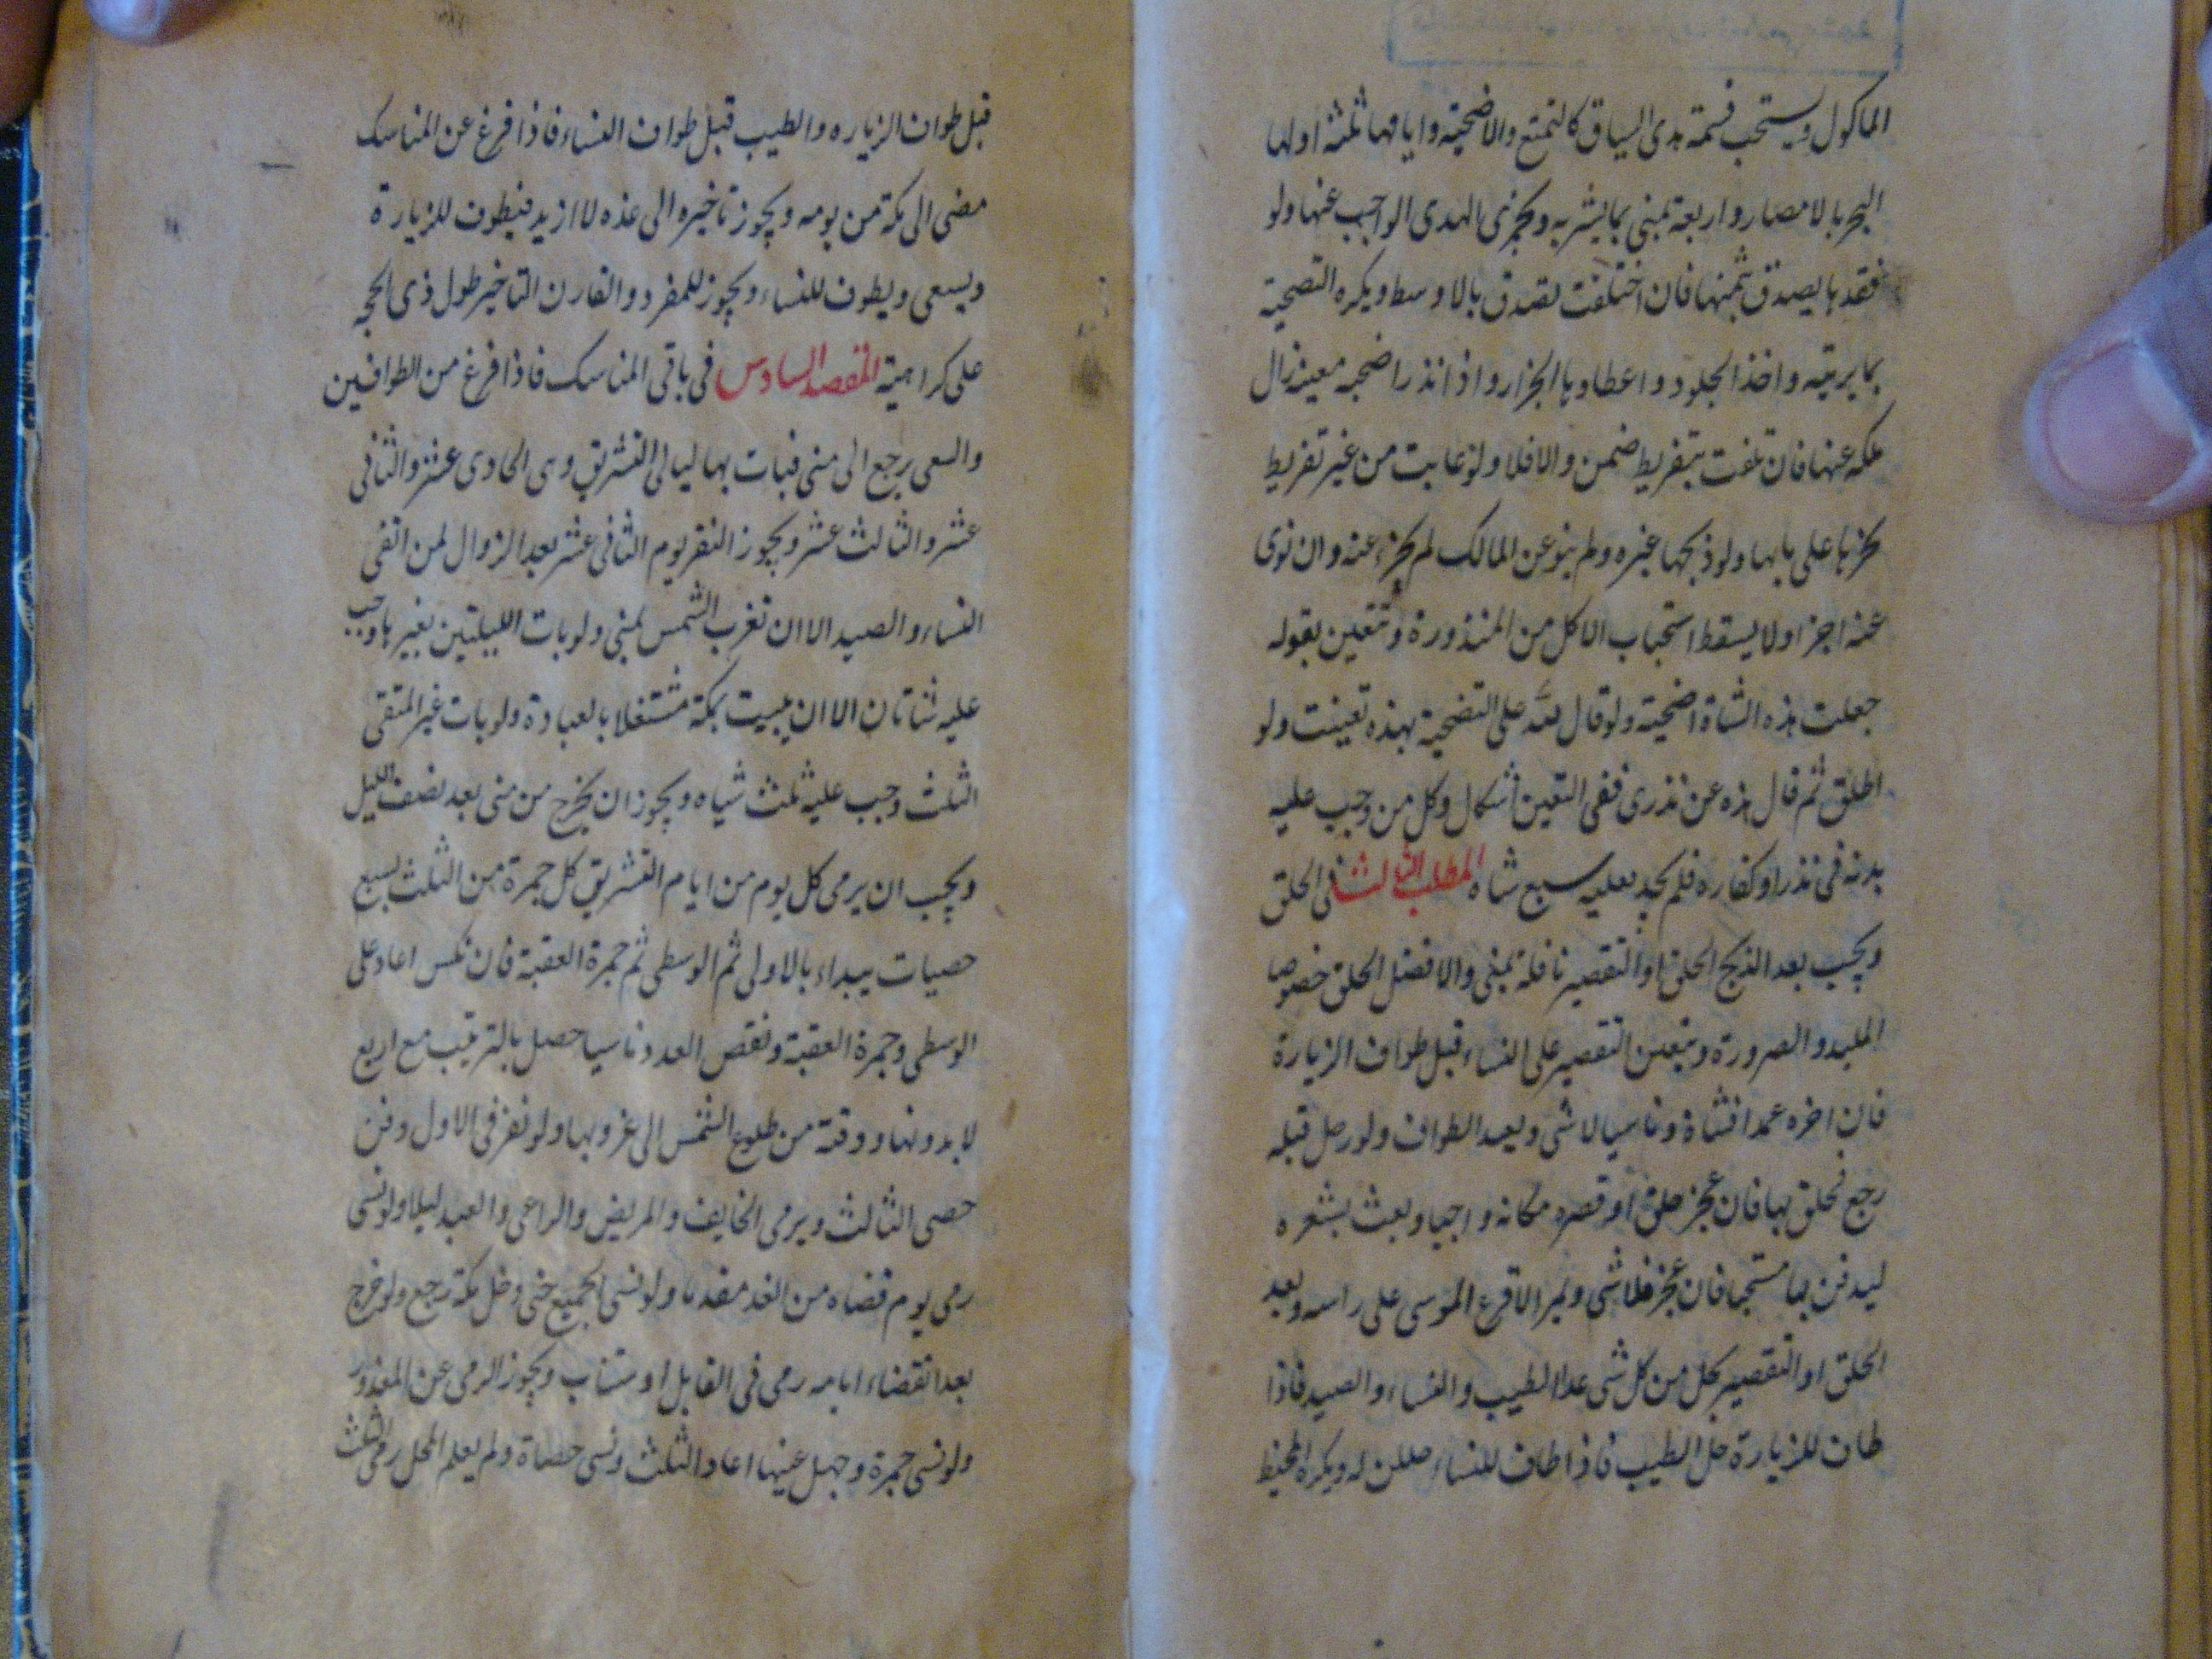 الماكول ويستحب قسمة هدى السياق كالتمتع والاضحية وايامها ثلثة اولها
النحر بالامصار واربعة بمنى بما يشتريه ويجزى الهدى الواجب عنها ولو
فقدها يصدق بثمنها فان اختلفت تصدق بالاوسط ويكره التضحية
بما يربيه واخذ الجلود واعطاوها الجزار واذا نذر اضحيه معينه زال
ملكه عنها فان تلفت بتفريط ضمن والا فلا ولو عابت من غير تفريط
نحرها على ما بها ولو ذبحها غيره ولم ينو عن المالك لم يجزء عنه وان نوى
عنه اجزا ولا يسقط استحباب الاكل من المنذورة وتتعين بقوله
جعلت هذه الشاة اضحية ولو قال لله على التضحية بهذه تعينت ولو
اطلق ثم قال هذه عن نذرى ففى التعين اشكال وكل من وجب عليه
بدنه فى نذر او كفاره فلم يجد فعليه سبع شاه المطلب الثالث فى الحلق
ويجب بعد الذبح الحلق او التقصير باقله بمنى والافضل الحلق خصوصا
الملبد والصرورة ويتعين التقصير على النساء قبل طواف الزيارة
فان اخره عمدا فشاة وناسيا لا شى ويعيد الطواف ولو رحل قبله
رجع فحلق بها فان عجز حلق او قصر مكانه واجبا وبعث بشعره
ليدفن بها مستحبا فان عجز فلا شى ويمر الاقرع الموسى على راسه وبعد
الحلق او التقصير يحل من كل شى عدا الطيب والنساء والصيد فاذا
طاف للزيارة حل الطيب فاذا طاف للنساء حللن له ويكره المخيط
قبل طواف الزياره والطيب قبل طواف النساء فاذا فرغ عن المناسك
مضى الى مكة من يومه ويجوز تاخيره الى غده لا ازيد فيطوف للزيارة
ويسعى ويطوف للنساء ويجوز للمفرد والقارن التاخير طول ذى الحجه
على كراهية المقصد السادس فى باقى المناسك فاذا فرغ من الطوافين
والسعى رجع الى منى فبات بها ليالى التشريق وهى الحادى عشر والثانى
عشر والثالث عشر ويجوز النفر يوم الثانى عشر بعد الزوال لمن اتقى
النساء والصيد الا ان تغرب الشمس بمنى ولو بات الليلتين بغيرها وجب
عليه شاتان الا ان يبيت بمكة مشتغلا بالعبادة ولو بات غير المتقى
الثلث وجب عليه ثلث شياه ويجوز ان يخرج من منى بعد نصف الليل
ويجب ان يرمى كل يوم من ايام التشريق كل جمرة من الثلث بسبع
حصيات يبداء بالاولى ثم الوسطى ثم جمرة العقبة فان نكس اعاد على
الوسطى وجمرة العقبة ونقص العدد ناسيا حصل بالترتيب مع اربع
لا بدونها ووقته من طلوع الشمس الى غروبها ولو نفر فى الاول دفن
حصى الثالث ويرمى الخايف والمريض والراعى والعبد ليلا ولو نسى
رمى يوم قضاه من الغد مقدما ولو نسى الجميع حتى دخل مكة رجع ولو خرج
بعد انقضاء ايامه رمى فى القابل او استناب ويجوز الرمى عن المعذور
ولو نسى جمرة وجهل عينها اعاد الثلث ونسى حصاة ولم يعلم المحل رمى الثلث